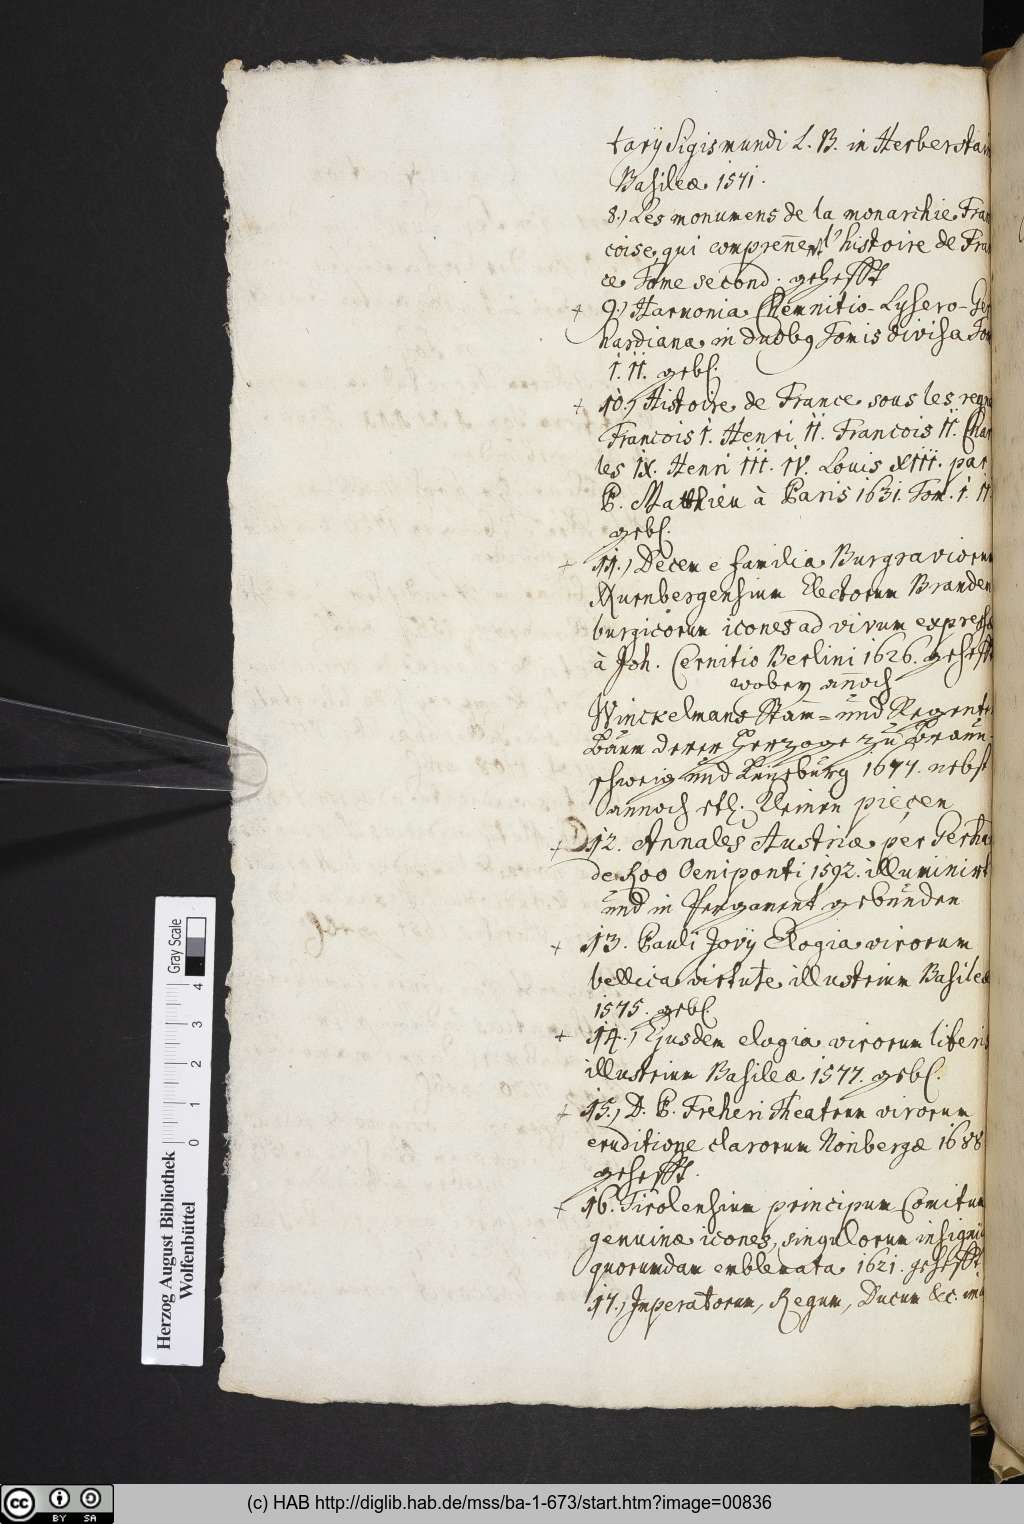 tarÿ Sigismundi L. B. in Herberstain
Basileæ 1571.
8.) Les monumens de la monarchie Fran
coise, qui comprennent l'histoire de Fran
ce Tome second. gehefft
+ 9.) Harmonia Chemnitio-Lysero-Ger
hardiana in duobq Tomis divisa Tom
I. II. geb.
+ 10.) Histoire de France sous les regne
Francois I. Henri II. Francois II. Char
les IX. Henri III. IV. Louis XIII. par
P. Matthieu à Paris 1631. Tom. I. II.
geb.
+ 11.) Decem e familia Burgraviorum
Nurnbergensium Electorum Branden
burgicorum icones ad vivum expressæ
à Joh. Cernitio Berlini 1626. gehefft
wobey annoch
Winckelmans Stam= und Regenten
Baum derer Herzoge zu Braun-
schweig und Lüneburg 1677. nebst
annoch etl. kleinen pieçen
+ 12. Annales Austriæ per Gerha
de Roo Oeniponti 1592. illuminirt
und in Pergament gebunden
+ 13. Pauli Jovÿ Elogia virorum
bellica virtute illustrium Basileæ
1575. geb.
+ 14.) Ejusdem elogia virorum literis
illustrium Basileæ 1577. geb.
+ 15.) D. P. Freheri Theatrum virorum
eruditione clarorum Noribergæ 1688
gehefft.
+ 16. Tirolensium principum Comitum
genuinæ icones, singulorum insigni
quorumdam emblemata 1621. gehefft
17.) Imperatorum, Regum, Ducum &c. im
Herzog August Bibliothek
Wolfenbüttel
0 1 2 3 4
Gray Scale
cc BY SA
(c) HAB http://diglib.hab.de/mss/ba-1-673/start.htm?image=00836